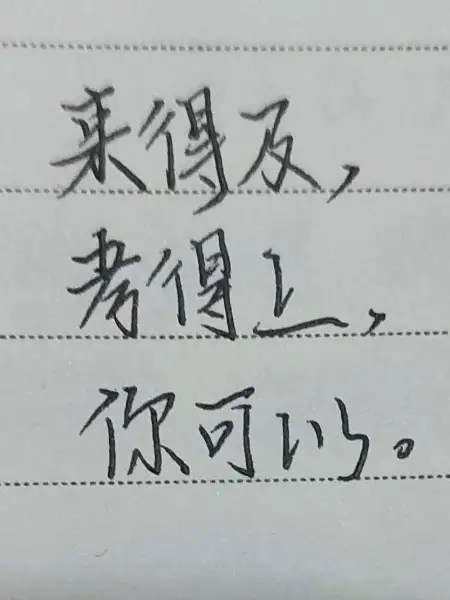 来得及，
考得上，
你可以。